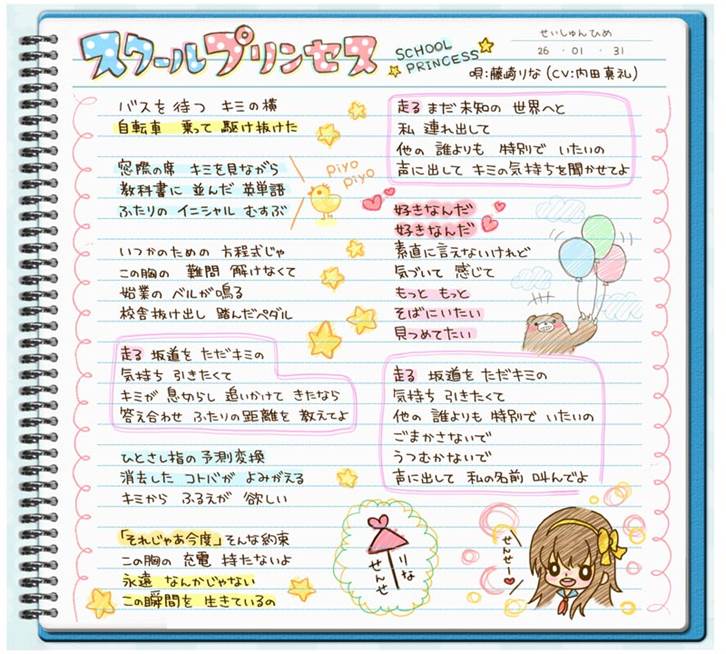 スクールプリンセス
SCHOOL PRINCESS
せいしゅんひめ
26・01・31
唄:藤崎りな (CV:内田真礼)
バスを待つ キミの横
自転車 乗って 駆け抜けた
窓際の席 キミを見ながら
教科書に 並んだ 英単語
ふたりの イニシャル むすぶ
piyo
piyo
いつかのための 方程式じゃ
この胸の 難問 解けなくて
始業の ベルが鳴る
校舎抜け出し 踏んだペダル
走る 坂道を ただキミの
気持ち 引きたくて
キミが 息切らし 追いかけて きたなら
答え合わせ ふたりの距離を 教えてよ
ひとさし指の 予測変換
消去した コトバが よみがえる
キミから ふるえが 欲しい
「それじゃあ今度」そんな約束
この胸の 充電 持たないよ
永遠 なんかじゃない
この瞬間を 生きているの
走る まだ 未知の 世界へと
私 連れ出して
他の 誰よりも 特別で いたいの
声に出して キミの気持ちを聞かせてよ
好きなんだ
好きなんだ
素直に言えないけれど
気づいて 感じて
もっと もっと
そばにいたい
見つめてたい
走る 坂道を ただキミの
気持ち 引きたくて
他の 誰よりも 特別で いたいの
ごまかさないで
うつむかないで
声に出して 私の名前 叫んでよ
りな
せんせ
せんせー♥